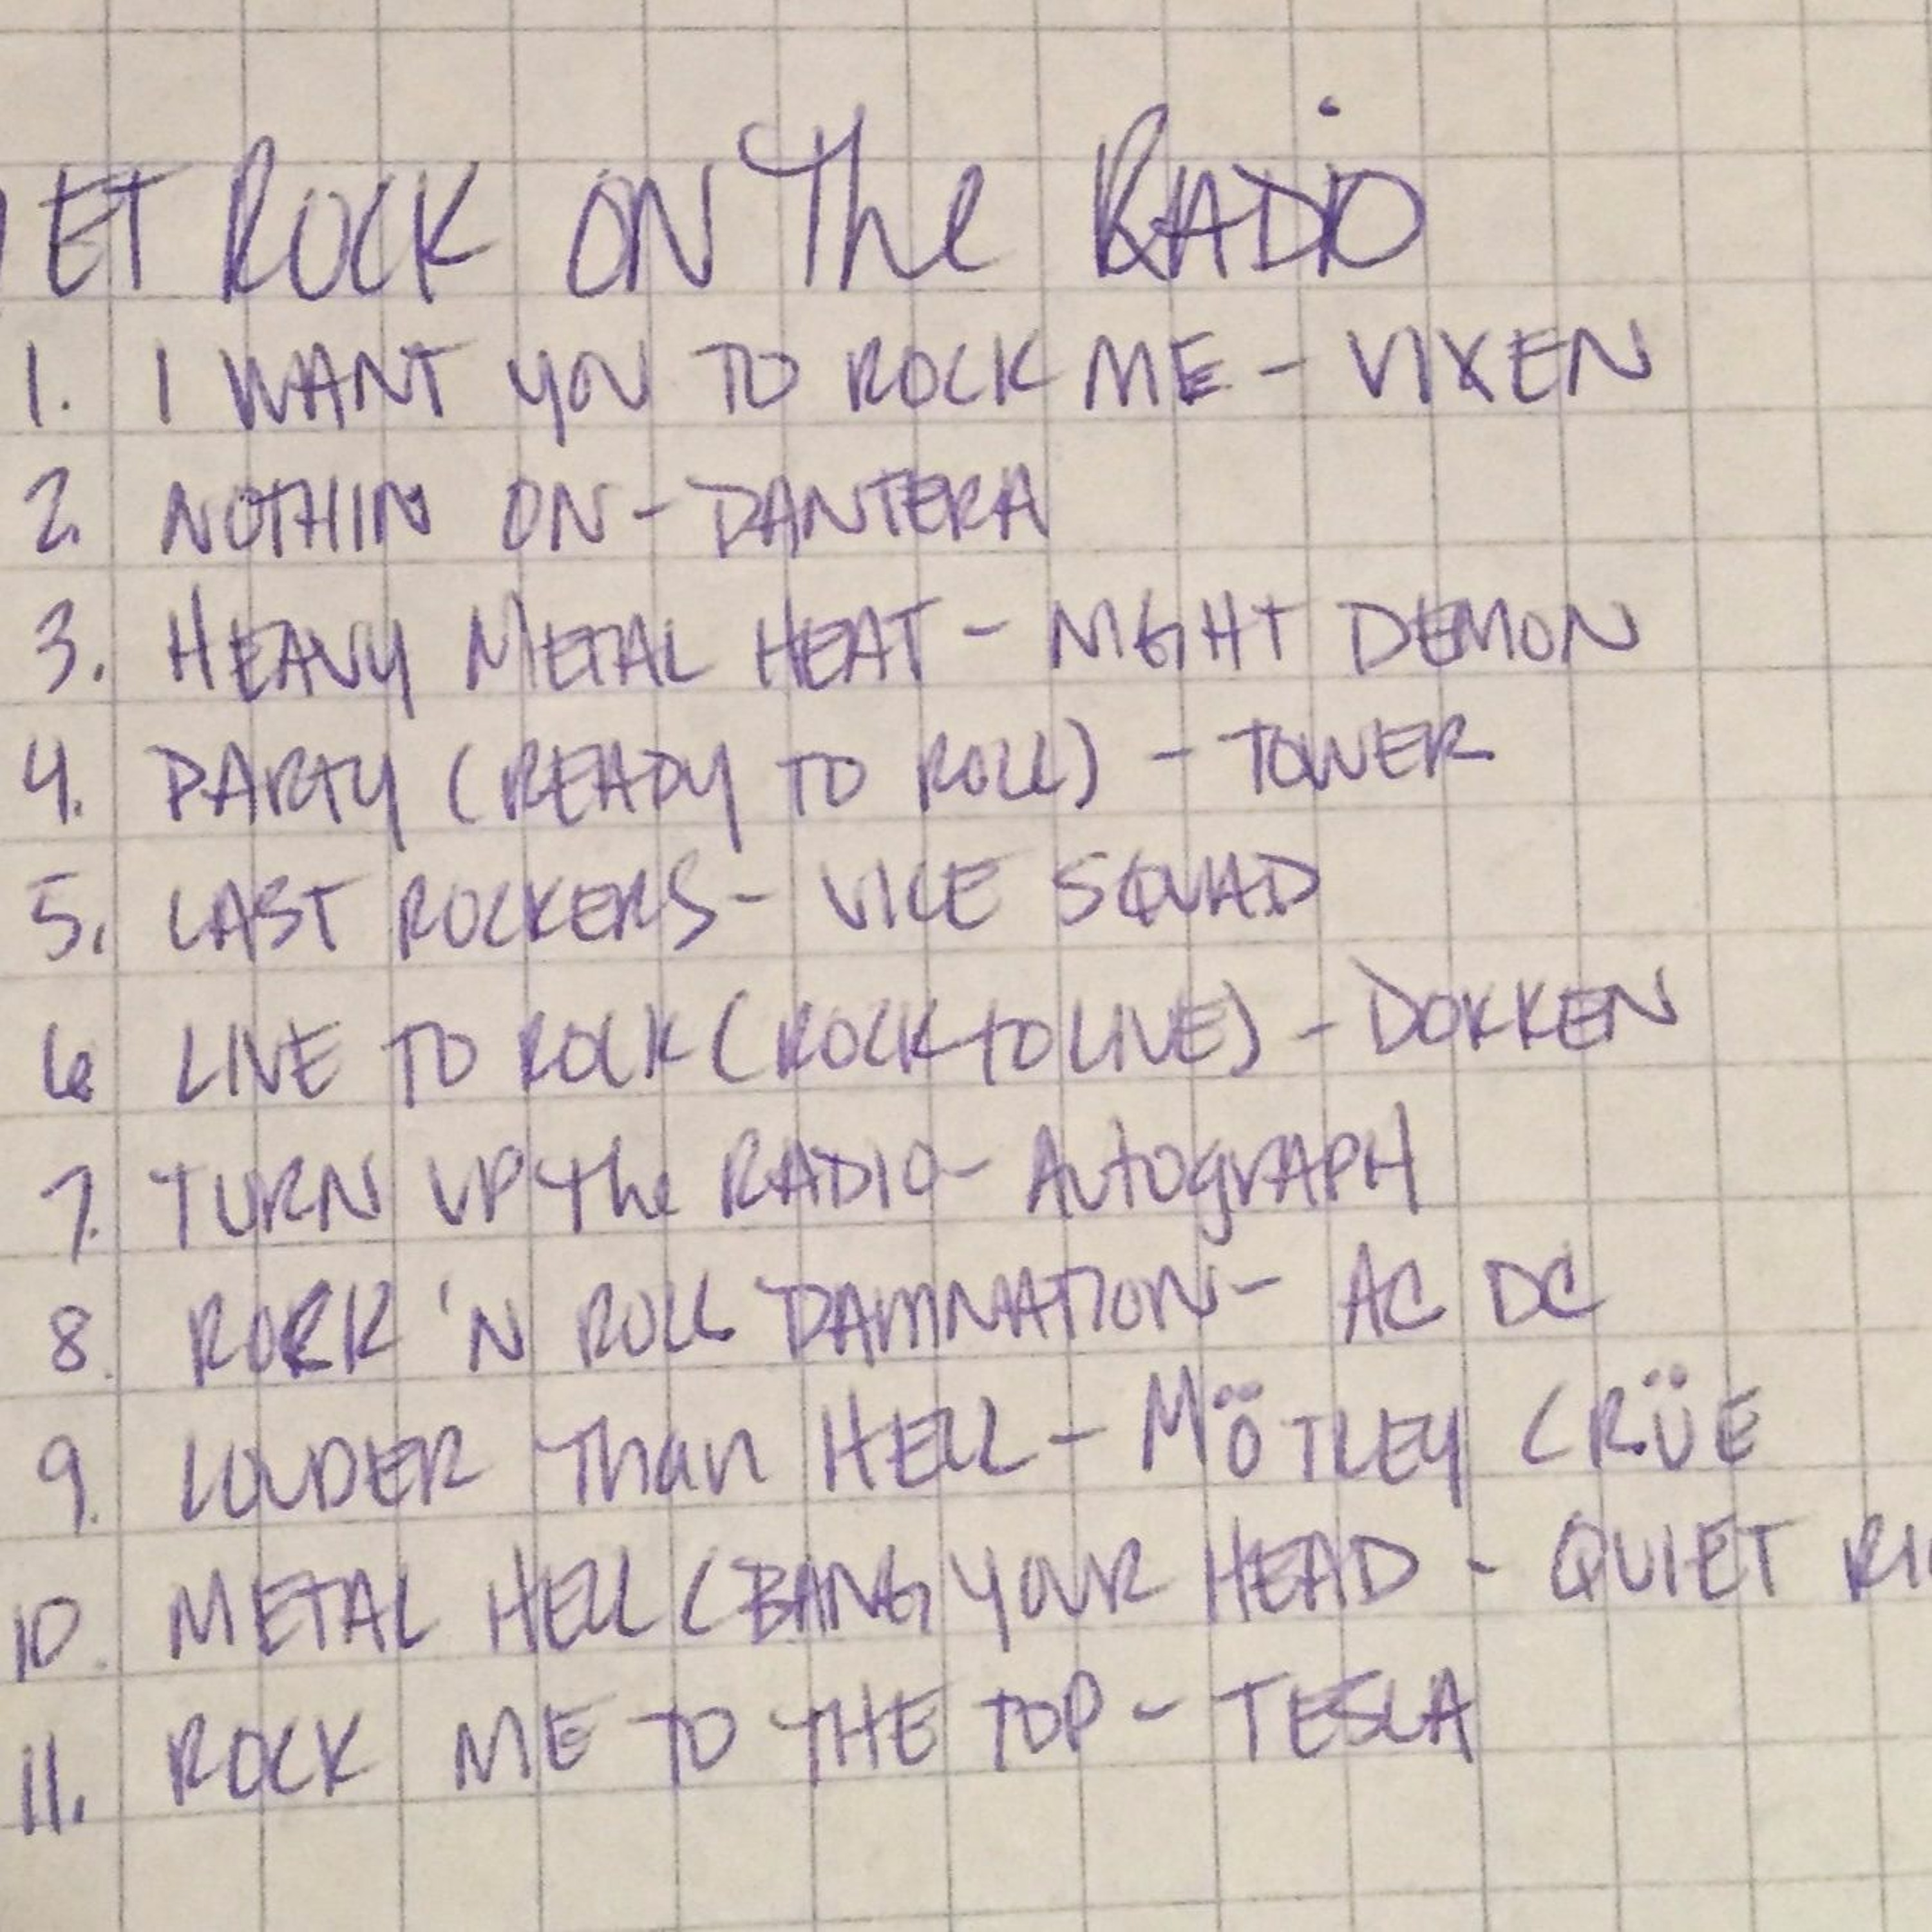 ET ROCK ON The RADIO
1. I WANT YOU TO ROCK ME - VIXEN
2. NOTHIN ON - PANTERA
3. HEAVY METAL HEAT - NIGHT DEMON
4. PARTY (READY TO ROLL) - TOWER
5. LAST ROCKERS - VICE SQUAD
6 LIVE TO ROCK (ROCK tO LIVE) - DOKKEN
7. TURN UP the RADIO - AUtOgrAPH
8. ROCK 'N ROLL DAMNATION - AC DC
9. LOUDER Than HELL - MÖTLEY CRÜE
10. METAL HELL (BANG YOUR HEAD - QUIET RI
11. ROCK ME TO THE TOP - TESLA